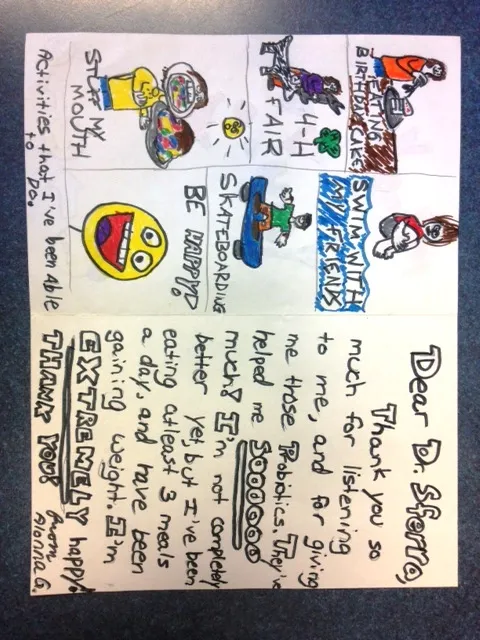 EATING
BIRTHDAY CAKE
SWIM WITH
MY FRIENDS
4-H
FAIR
SKATEBOARDING
STUFF MY
MOUTH
BE HAPPY!
Activities that I've been Able
to Do.
Dear Dr. Sferro,
Thank you so
much for listening
to me, and for giving
me those Probotics. They've
helped me Soooooo
much! I'm not completely
better yet, but I've been
eating atleast 3 meals
a day, and have been
gaining weight. I'm
EXTREMELY happy!
THANK YOU!
From,
G.